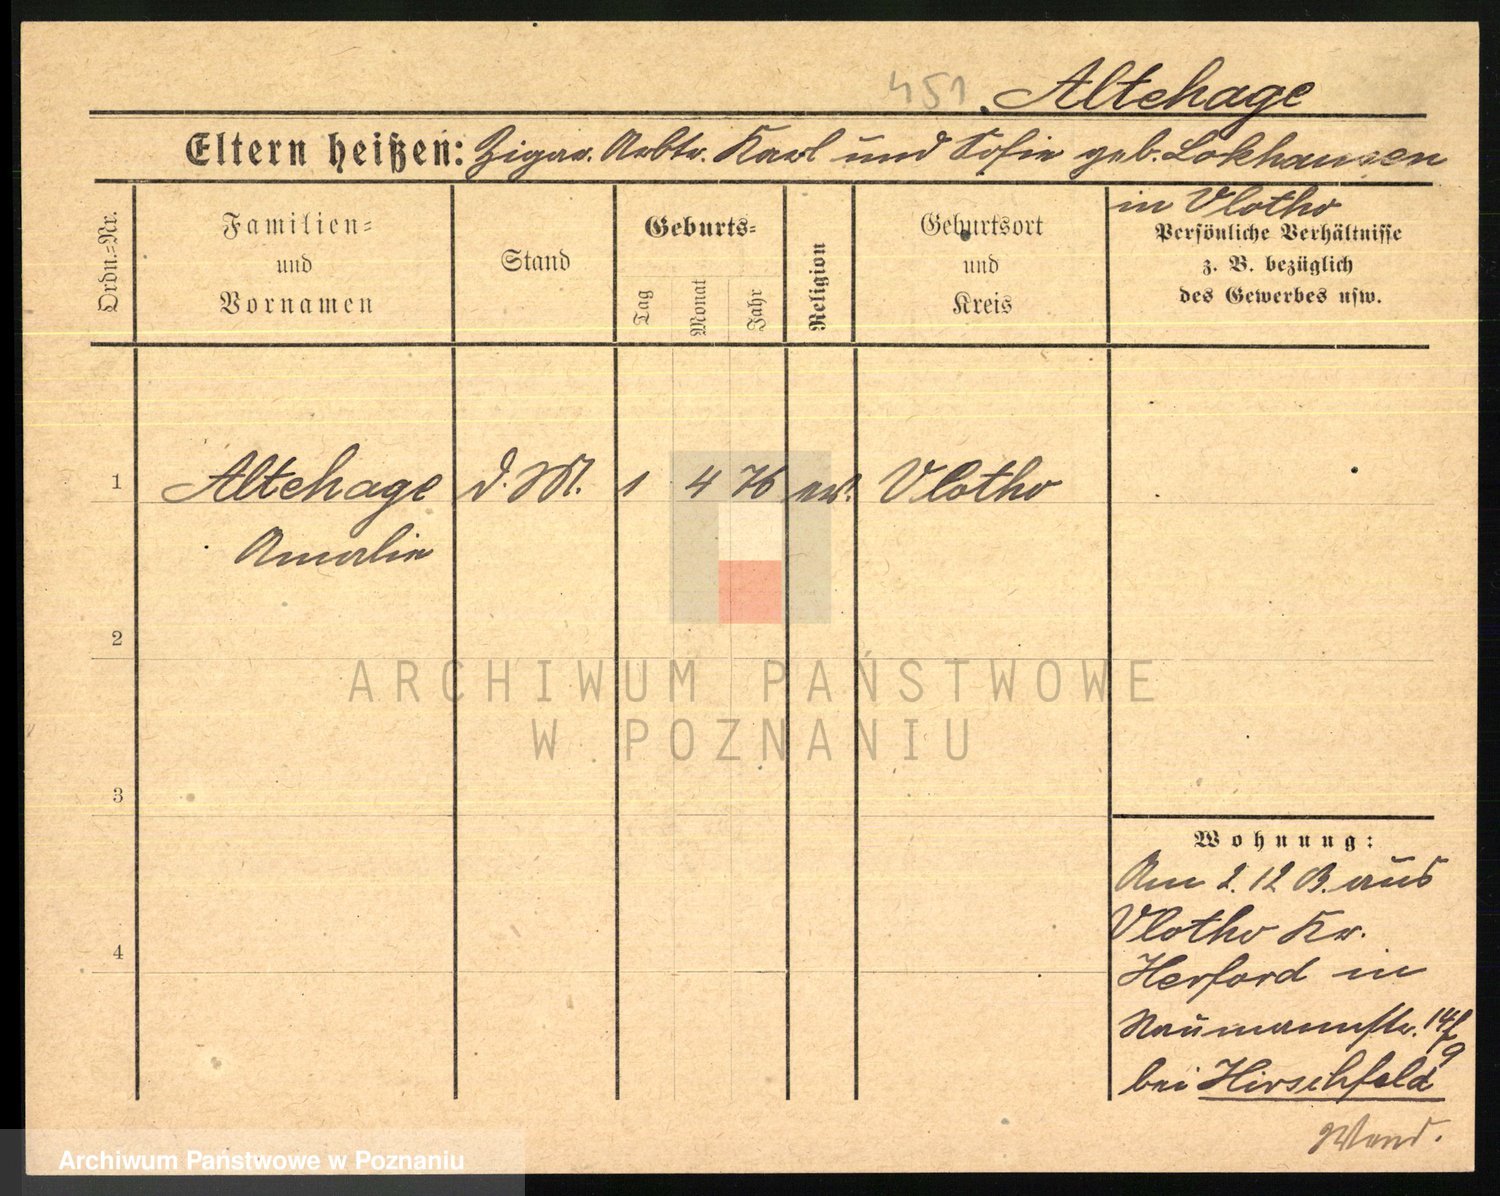 451 Altehage
Eltern heißen: Zigar. Arbtr. Karl und Sofie geb. Lokhausen
in Vlotho
Ordn.-Nr.
Familien-
und
Vornamen
Stand
Geburts-
Tag
Monat
Jahr
Religion
Geburtsort
und
Kreis
Persönliche Verhältnisse
z. B. bezüglich
des Gewerbes usw.
1 Altehage d. M. 1 4 76 ev. Vlotho
Amalie
2
3
4
ARCHIWUM PAŃSTWOWE
W POZNANIU
Wohnung:
Am 2. 12 B. aus
Vlotho Kr.
Herford in
Naumannstr. 14
bei Hirschfeld
Archiwum Państwowe w Poznaniu